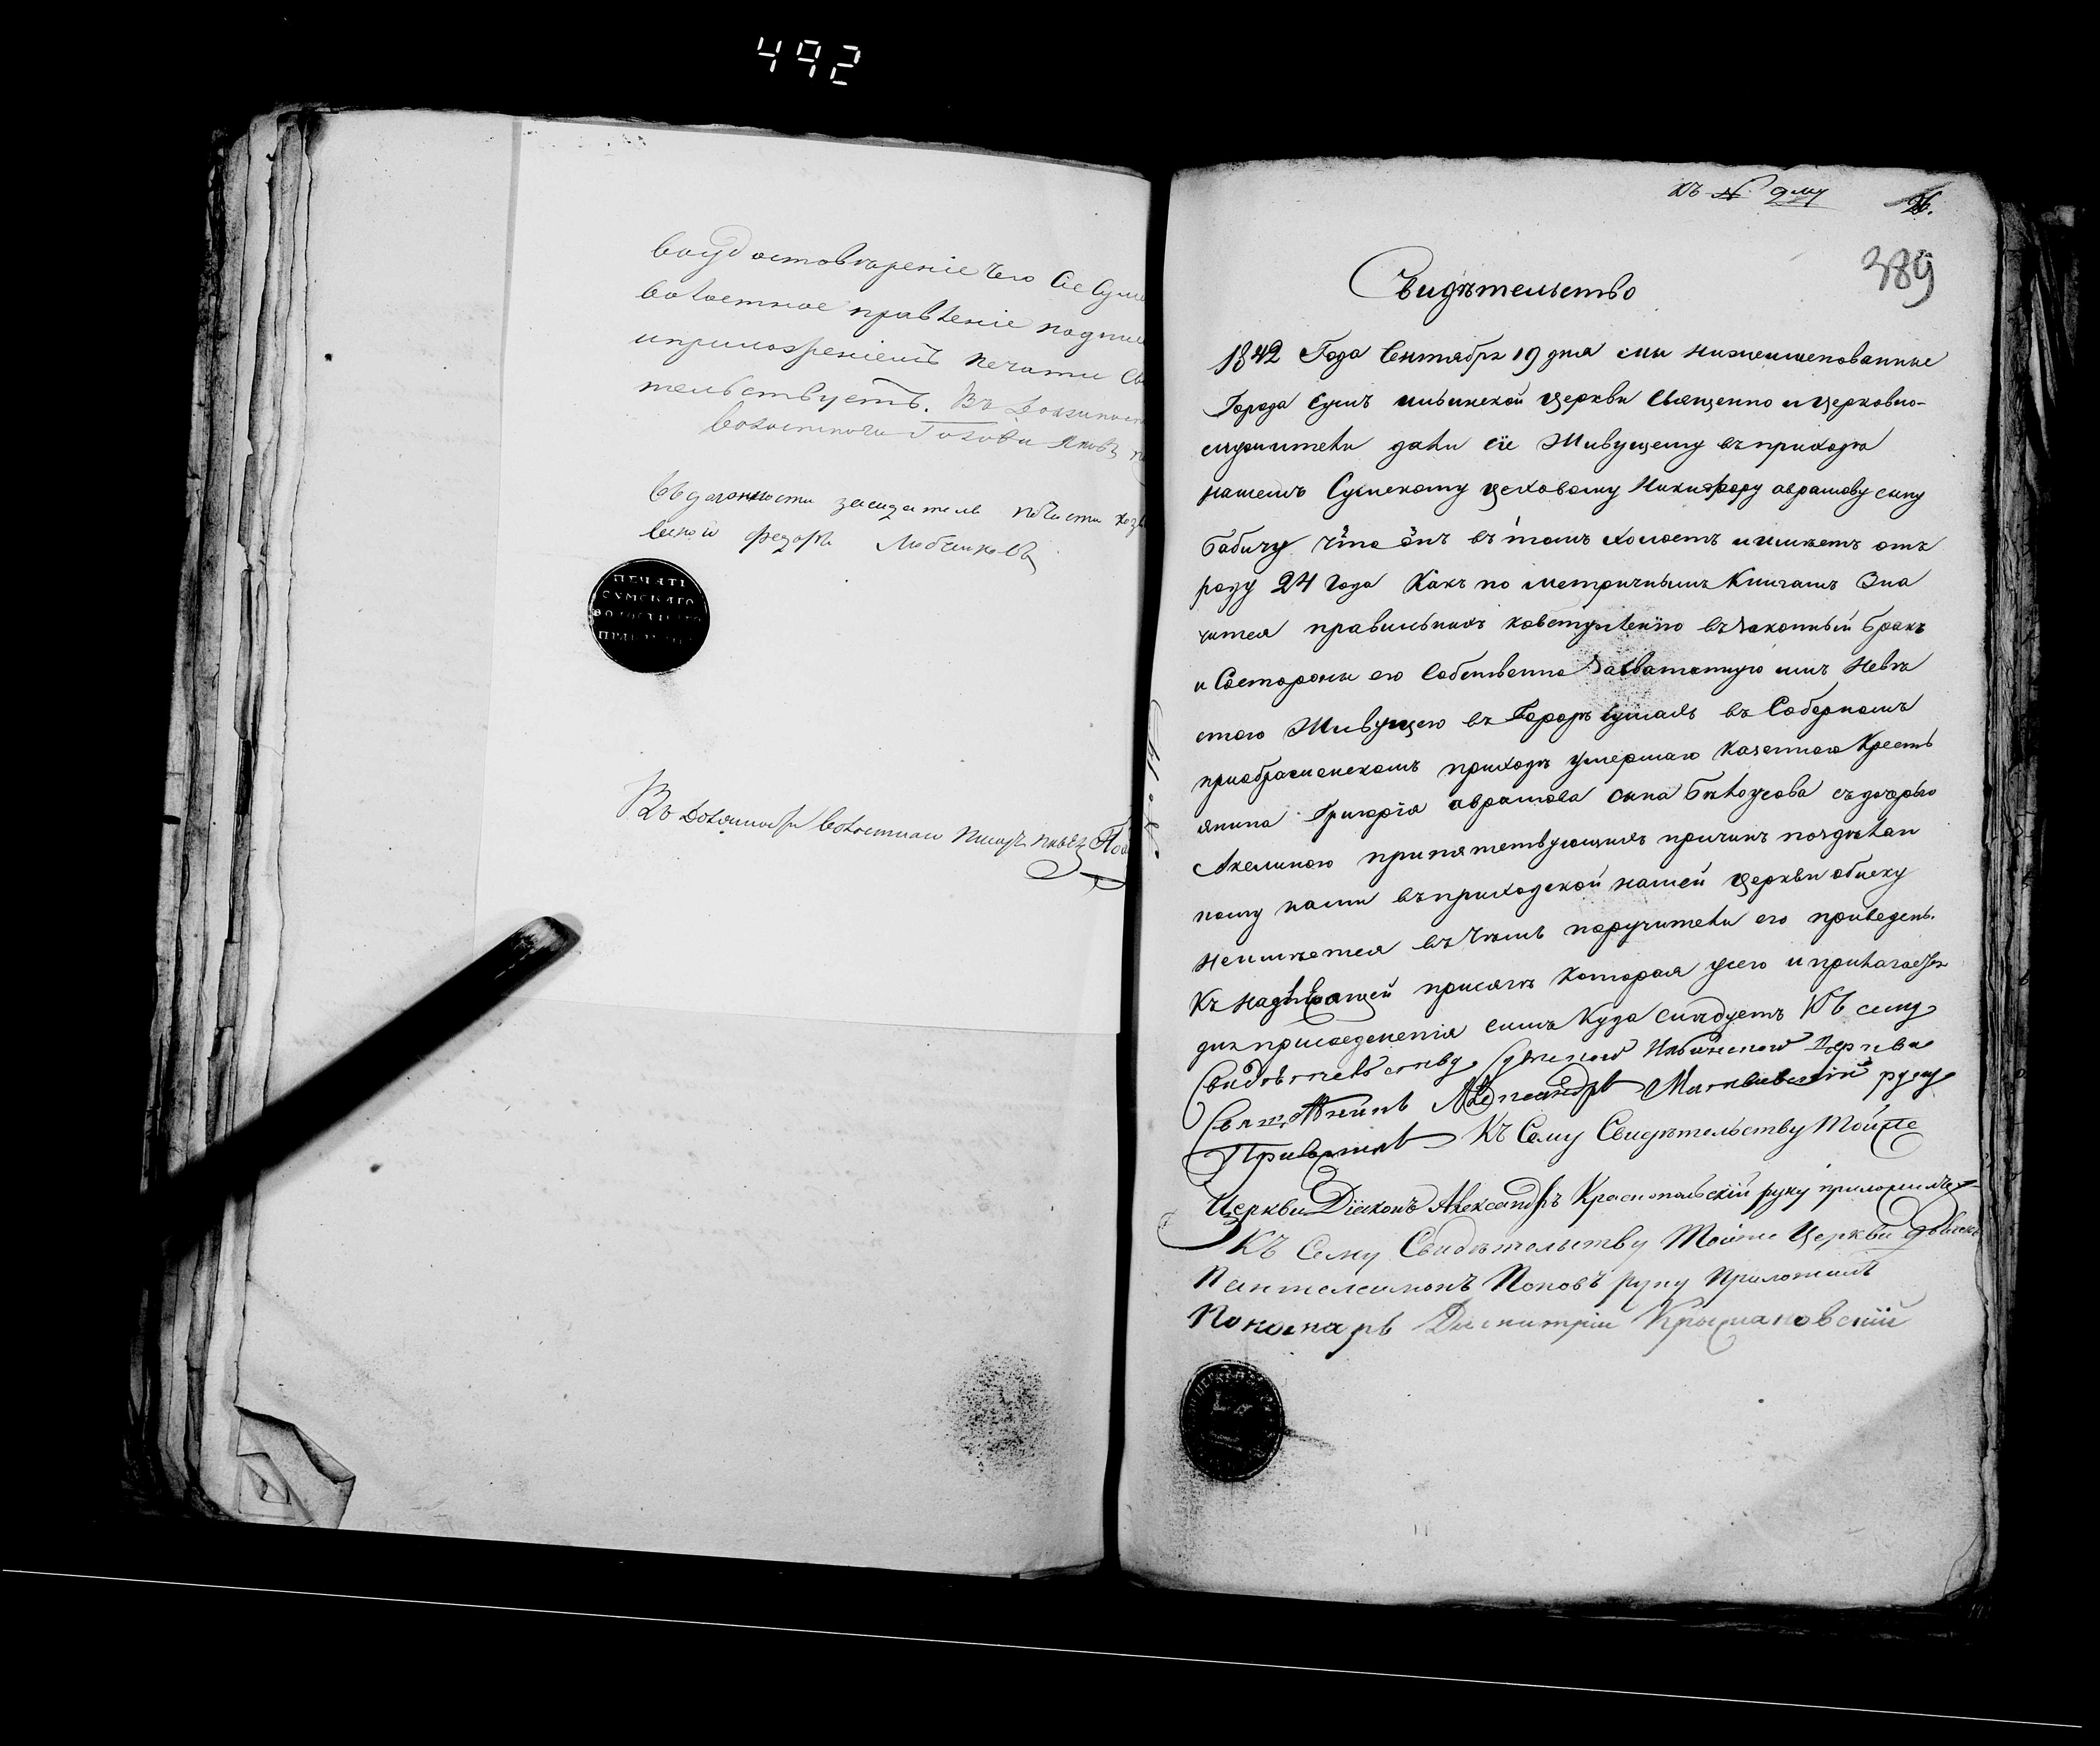 492
воудостовѣреніе чего Сіе Сумс
волостное правленіе подпис
иприложеніемъ печати Св
тельствуетъ. Въ должност
волостнаго Головы Яковъ
въ должности заседателя почасти хозя
Федоръ Любчинковъ
ПЕЧАТЬ
СУМСКАГО
ВОЛОСТНАГО
ПРАВЛЕНІЯ
Въ должности волостнаго писаръ
къ № 9му 26.
389
Свидѣтельство
1842 Года Сентября 19 дня мы нижеименованные
Города Сумъ ильинской церкви Священно и церковно-
служители дали сіе Живущему въ приходѣ
нашемъ Сумскому цеховому Никифору аврамову сыну
бабичу что онъ въ томъ холостъ и имѣетъ отъ
роду 24 Года Какъ по метричнымъ Книгамъ Зна
чится правильныхъ ковступленію въ законный бракъ
и Состороны его Собственно Засватанную имъ Невѣ
стою Живущего въ Городѣ сумахъ въ Соборномъ
приображенскомъ приходѣ умершаго Казеннаго Кресть
янина Григорія аврамова сына Бѣлоусова съ дочерью
Акелиною припятствующихъ причинъ поздѣлан
ному нами въ приходской нашей церкви обыску
неимѣется въ чемъ поручители его приведены
Къ надлѣжащей присягѣ которая усего и прилагается
для присоеденения симъ Куда слѣдуетъ Къ сему
Свидѣтельству Сумской Ильинской Церкви
Священникъ Александръ руку
Приложилъ Къ Сему Свидѣтельству Тойже
Церкви Діяконъ Александръ Краснопольскій руку приложилъ
Къ Сему Свидѣтельству Тойже Церкви дьячекъ
Пантелеимонъ Поповъ руку Приложилъ
Пономарь Димитрій Крыжановскій